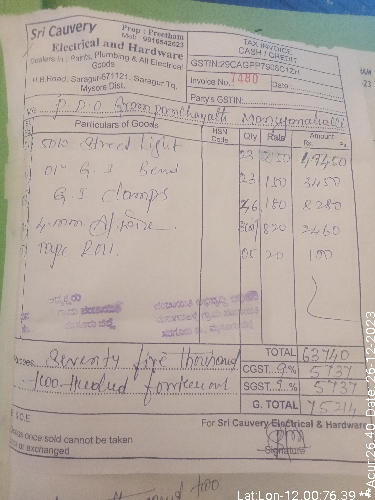 Sri Cauvery
Prop : Preetham
Mob : 9916542623
Electrical and Hardware
Dealers in : Paints, Plumbing & All Electrical
Goods
H.B.Road, Saragur-671121, Saragur Tq.
Mysore Dist.
TAX INVOICE
CASH / CREDIT
Invoice No. 1480 Date
Party's GSTIN:
M/s P.D.O
Particulars of Goods HSN Code Qty Rate Amount Rs. Ps.
Street light 23 2150 49450
G.I Bend 23 150 3450
G.I clamps 46 180 8280
4 mm 820 2460
Tape Roll 05 20 100
TOTAL 63740
Rupees Seventy five thousand
CGST 9% 5737
SGST 9% 5737
G. TOTAL 75214
two hundred fourteen only
E & O.E
For Sri Cauvery Electrical & Hardware
Goods once sold cannot be taken
back or exchanged
Signature
Lat:Lon-12.00:76.39
Acur:26.40 Date: 26-12-2023